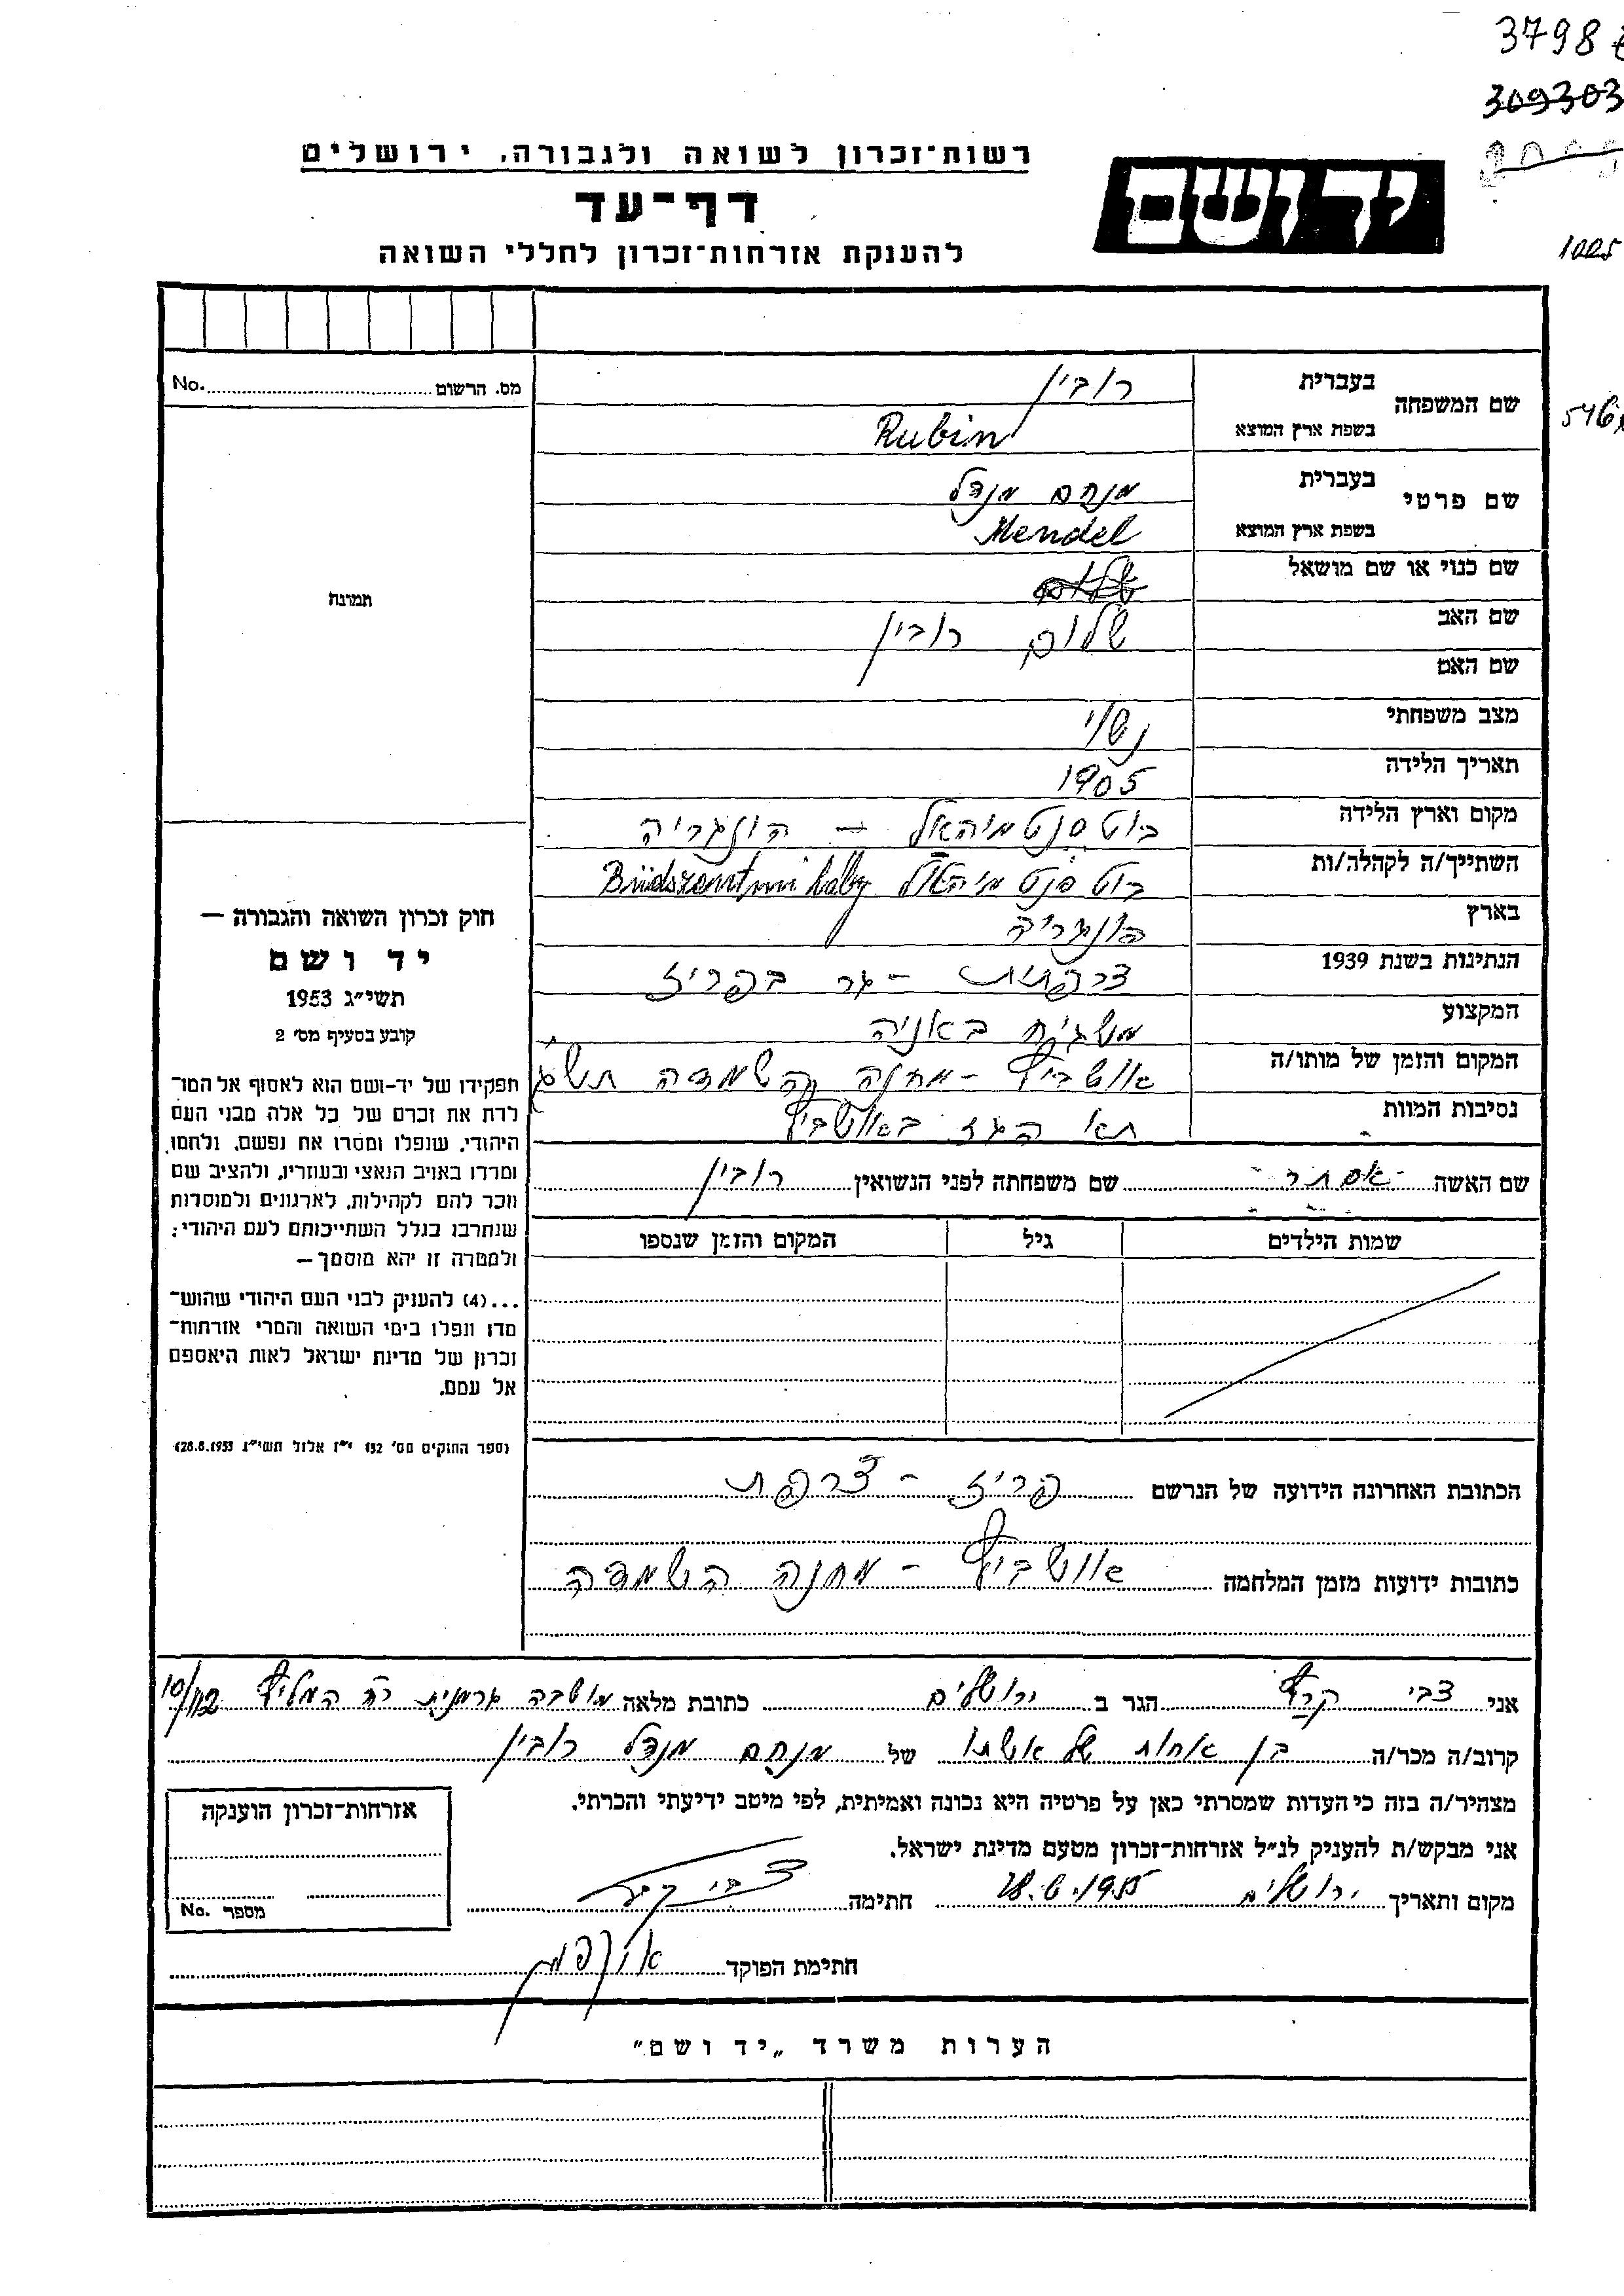 3798
309303
1005
546
רשות־זכרון לשואה ולגבורה, ירושלים
יד ושם
דף־עד
להענקת אזרחות־זכרון לחללי השואה
מס. הרשום No.
תמונה
חוק זכרון השואה והגבורה —
יד ושם
תשי״ג 1953
קובע בסעיף מס׳ 2
תפקידו של יד־ושם הוא לאסוף אל המו־
לדת את זכרם של כל אלה מבני העם
היהודי, שנפלו ומסרו את נפשם, נלחמו,
ומרדו באויב הנאצי ובעוזריו, ולהציב שם
וזכר להם לקהילות, לארגונים ולמוסדות
שנחרבו בגלל השתייכותם לעם היהודי;
ולמטרה זו יהא מוסמך —
...(4) להעניק לבני העם היהודי שהוש־
מדו ונפלו בימי השואה והמרי אזרחות־
זכרון של מדינת ישראל לאות היאספם
אל עמם.
(ספר החוקים מס׳ 132 י״ז אלול תשי״ג 28.8.1953)
שם המשפחה בעברית רובין
בשפת ארץ המוצא Rubin
שם פרטי בעברית מנחם מנדל
בשפת ארץ המוצא Mendel
שם כנוי או שם מושאל
שם האב שלום רובין
שם האם
מצב משפחתי נשוי
תאריך הלידה 1905
מקום וארץ הלידה בוט סנט מיהאל — הונגריה
השתייך/ה לקהלה/ות בוט סנט מיהאל Büdszentmihály
בארץ הונגריה
הנתינות בשנת 1939 צרפתית - גר בפריז
המקצוע משגיח באניה
המקום והזמן של מותו/ה אושביץ - מחנה השמדה תש״ג
נסיבות המוות תא הגז באושביץ
שם האשה אסתר שם משפחתה לפני הנשואין רובין
שמות הילדים גיל המקום והזמן שנספו
הכתובת האחרונה הידועה של הנרשם פריז - צרפת
כתובות ידועות מזמן המלחמה אושביץ - מחנה השמדה
אני צבי הגר ב ירושלים כתובת מלאה מושבה גרמנית רח׳ המליץ 10/112
קרוב/ה מכר/ה בן אחות של אשתו של מנחם מנדל רובין
מצהיר/ה בזה כי העדות שמסרתי כאן על פרטיה היא נכונה ואמיתית, לפי מיטב ידיעתי והכרתי.
אני מבקש/ת להעניק לנ״ל אזרחות־זכרון מטעם מדינת ישראל.
מקום ותאריך ירושלים 28.6.1955 חתימה צבי
חתימת הפוקד
אזרחות־זכרון הוענקה
מספר No.
הערות משרד „יד ושם״